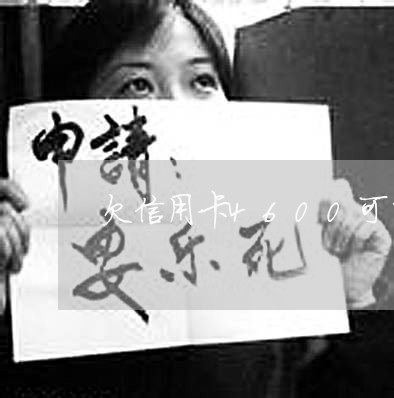 申請：
欠信用卡4600可
要乐死